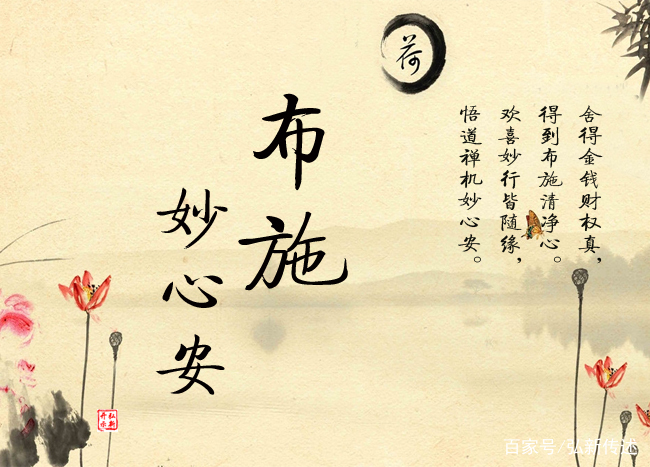 荷
舍得金钱财权真，
得到布施清净心。
欢喜妙行皆随缘，
悟道禅机妙心安。
布施
妙心安
百家号/弘新传述